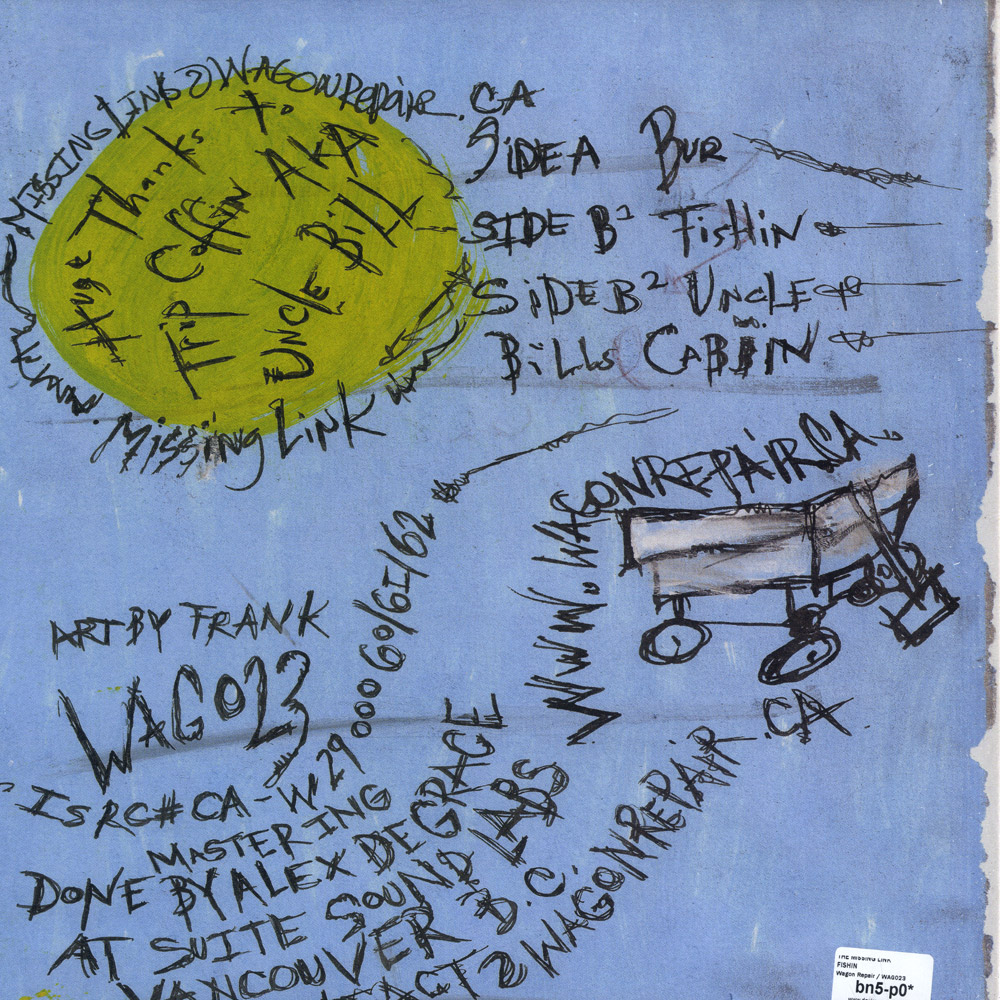 MISSING LINK @ WAGONREPAIR.CA
Huge Thanks to
TRIP
AKA
UNCLE BILL
MISSING LINK
SIDE A BUR
SIDE B1 FISHIN
SIDE B2 UNCLE
BILLS CABBIN
WWW.WAGONREPAIR.CA
ART BY FRANK
WAG023
ISRC# CA-W29 000 60/61/62
MASTERING
DONE BY ALEX DEGRACE
AT SUITE SOUND LABS
VANCOUVER B.C.
@ WAGONREPAIR.CA
THE MISSING LINK
FISHIN
Wagon Repair / WAG023
bn5-p0*